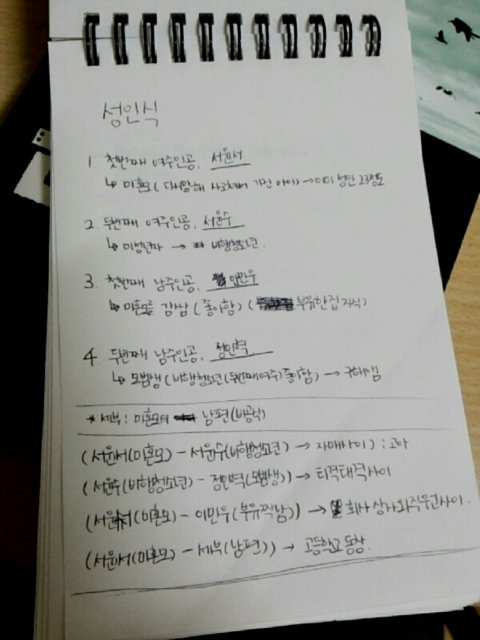 성인식
1. 첫번째 여주인공, 서윤서
↳ 미혼모 (다시말해 사고쳐서 가진 아이) → 이미 성인 23정도
2. 두번째 여주인공, 서윤수
↳ 미성년자 → 비행청소년.
3. 첫번째 남주인공, 이민우
↳ 미혼모를 감쌈 (좋아함) (부유한집 자식)
4. 두번째 남주인공, 정민혁
↳ 모범생 (비행청소년 (두번째여주) 좋아함) →
* 세부 : 미혼모의 남편 (비공식)
(서윤서(미혼모) - 서윤수(비행청소년) → 자매사이) : 고아
(서윤수(비행청소년) - 정민혁(모범생)) → 티격태격사이
(서윤서(미혼모) - 이민우(부유찍남)) → 회사 상사와직무관사이.
(서윤서(미혼모) - 세부(남편)) → 고등학교 동창.